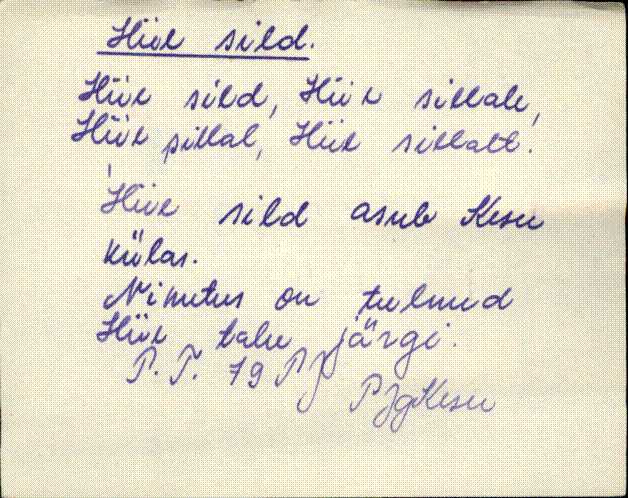 Hiie sild.
Hiie sild, Hiie sillale,
Hiie sillal, Hiie sillalt.
Hiie sild asub Kesu
külas.
Nimetus on tulnud
Hiie talu järgi.
P. T. 79 PJ
PJg Kesu